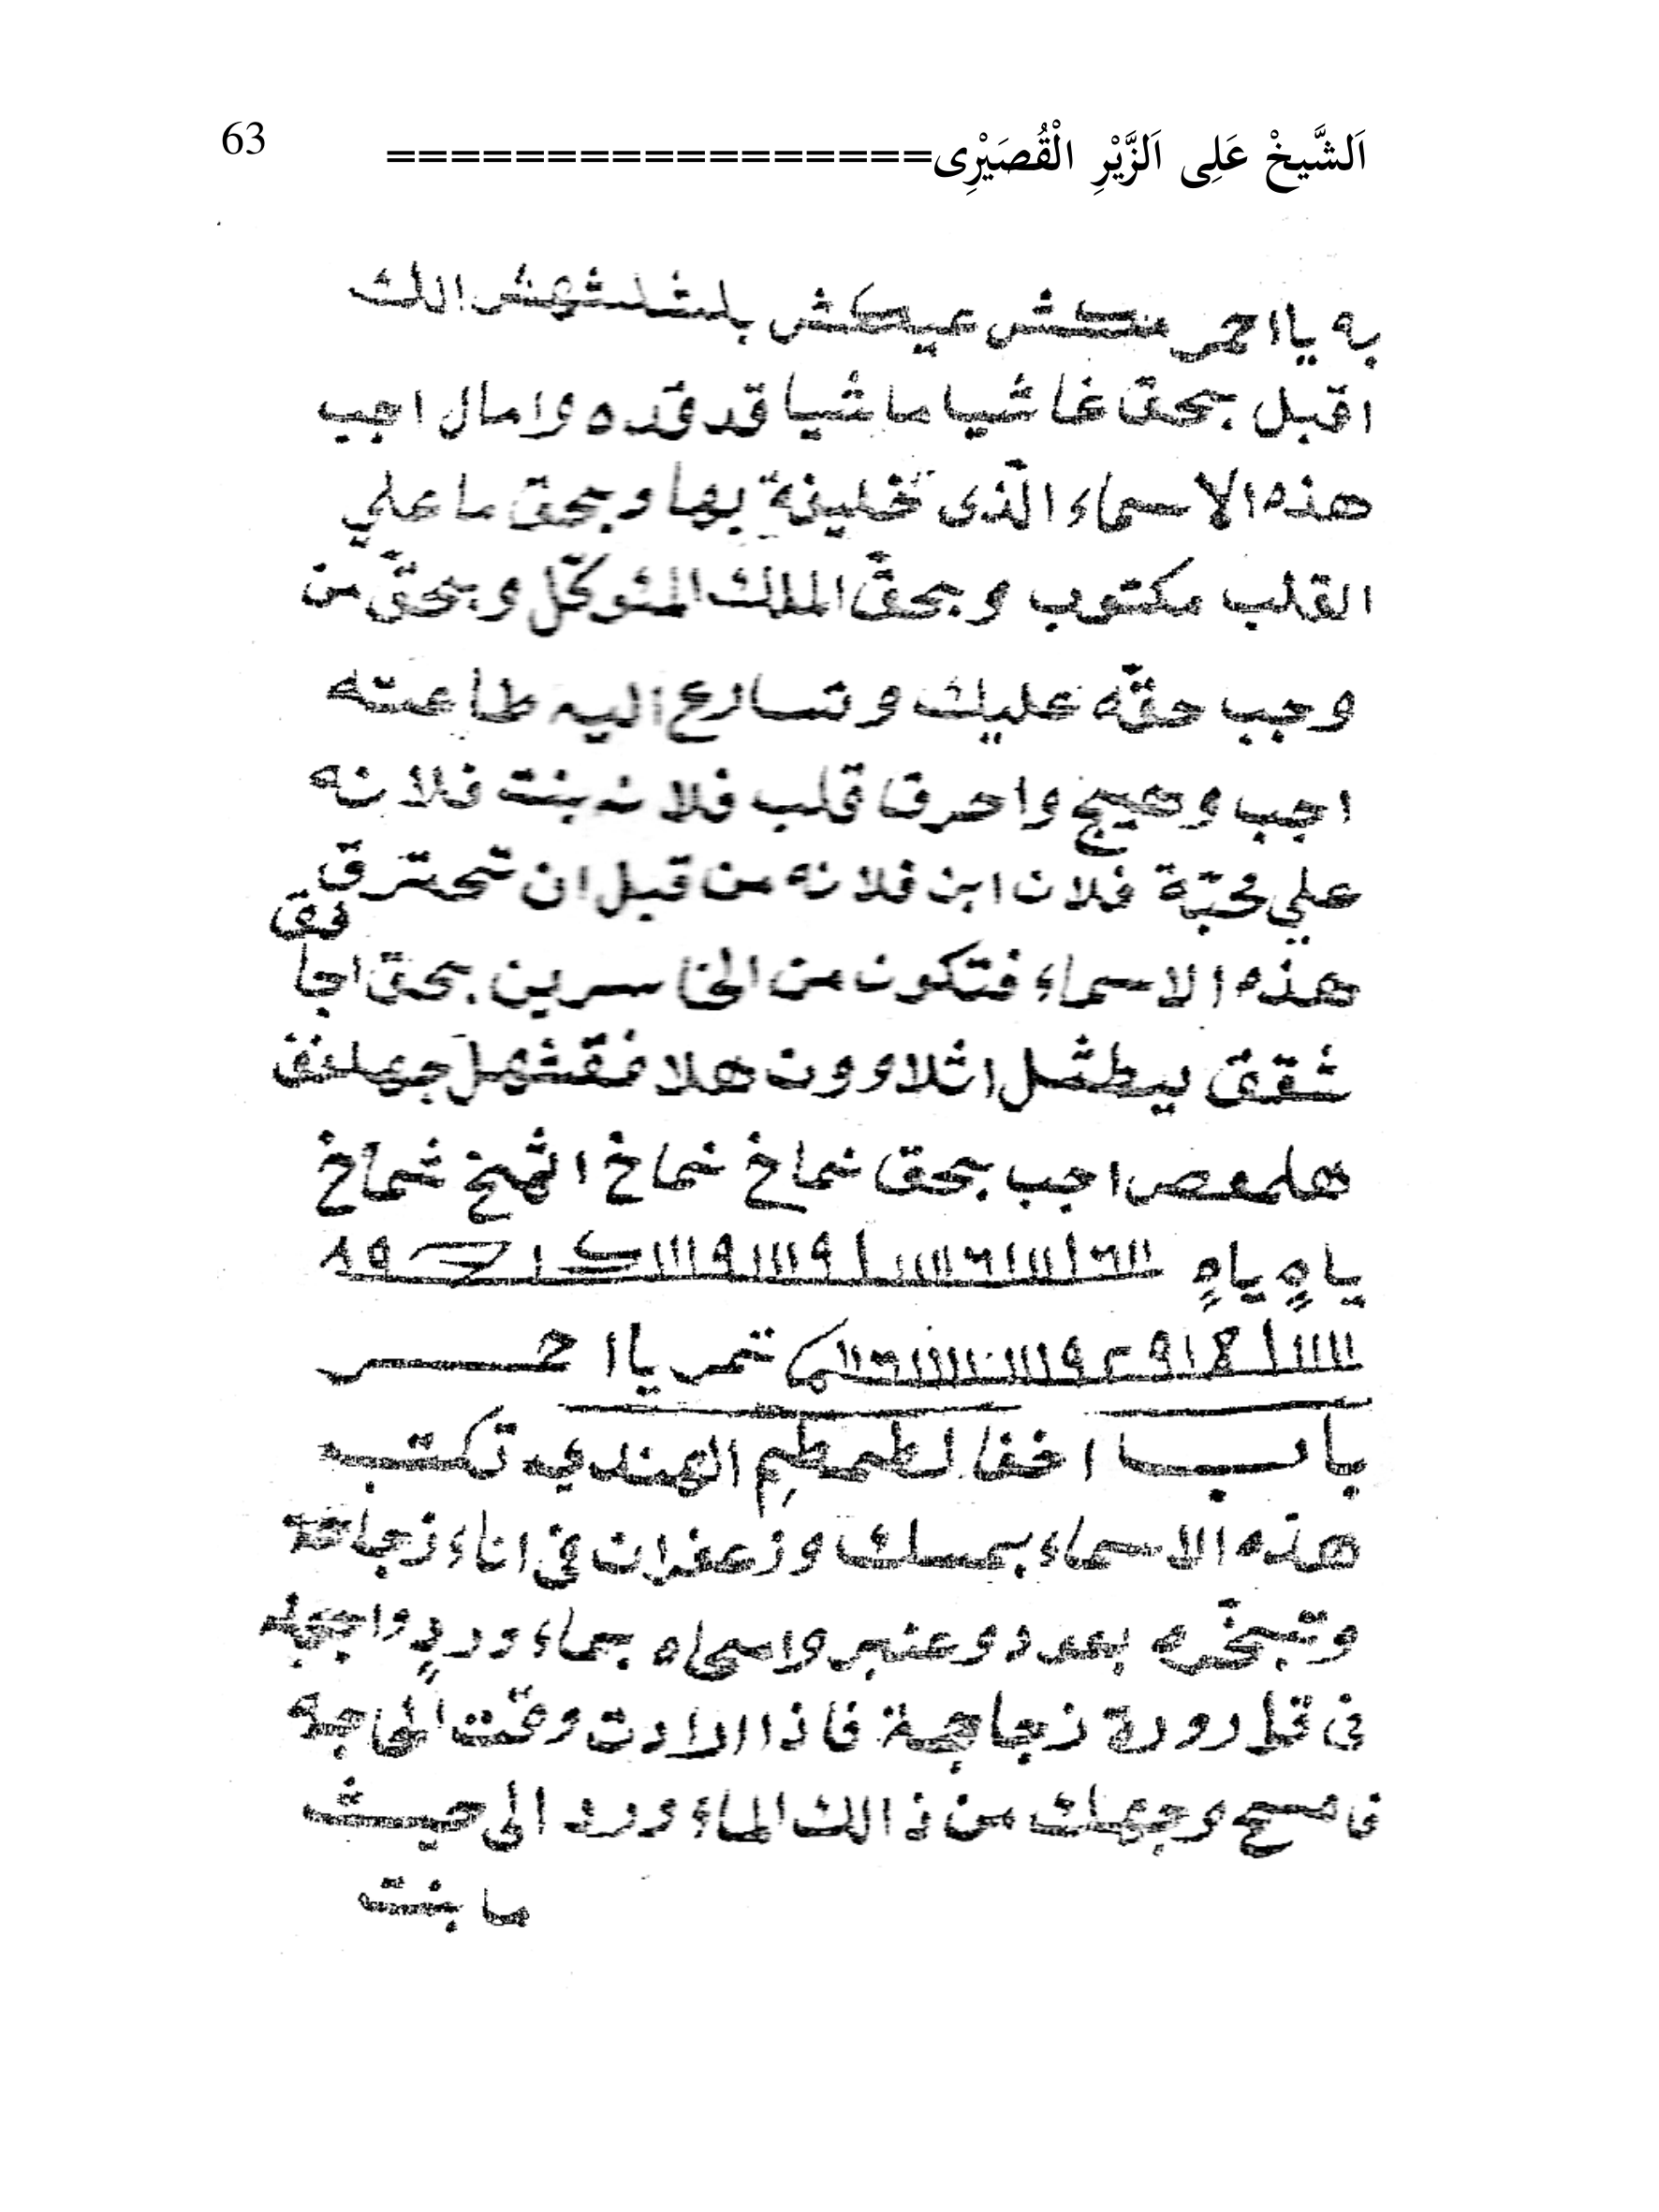 اَلشَّيخْ عَلِى اَلزَّيْرِ الْقُصَيْرِى================= 63
به يا احمر عيكش بلشلشهش الك
اقبل بحق غاشيا ماشيا قد قده وامال اجب
هذه الاسماء الّذى بها وبحق ما علي
القلب مكتوب وبحقّ الملك المئوكّل وبحقّ من
وجب حقّه عليك وتسارع اليه طاعته
اجب وهيج واحرق قلب فلانه بنت فلانه
علي محبّة فلان ابن فلانه من قبل ان تحترق
هذه الاسماء فتكون من الخاسرين بحق اجا
شقق يطشل اثلاوون هلا فقشهل
هلمعص اجب بحق شماخ شماخ شماخ
ياهٍ ياهٍ
تمر يا احمر
باب اخفا لطمطمِ الهندي تكتب
هذه الاسماء بمسك وزعفران فى اناء زجاجة
وتبخّره بعود وعنبر وامحاه بماء وردٍ واجعله
فى قلارورة زجاجية فاذا الاردت وقت الحاجه
فامسح وجهك من ذالك الماء ورد الى حيث
ما بنت